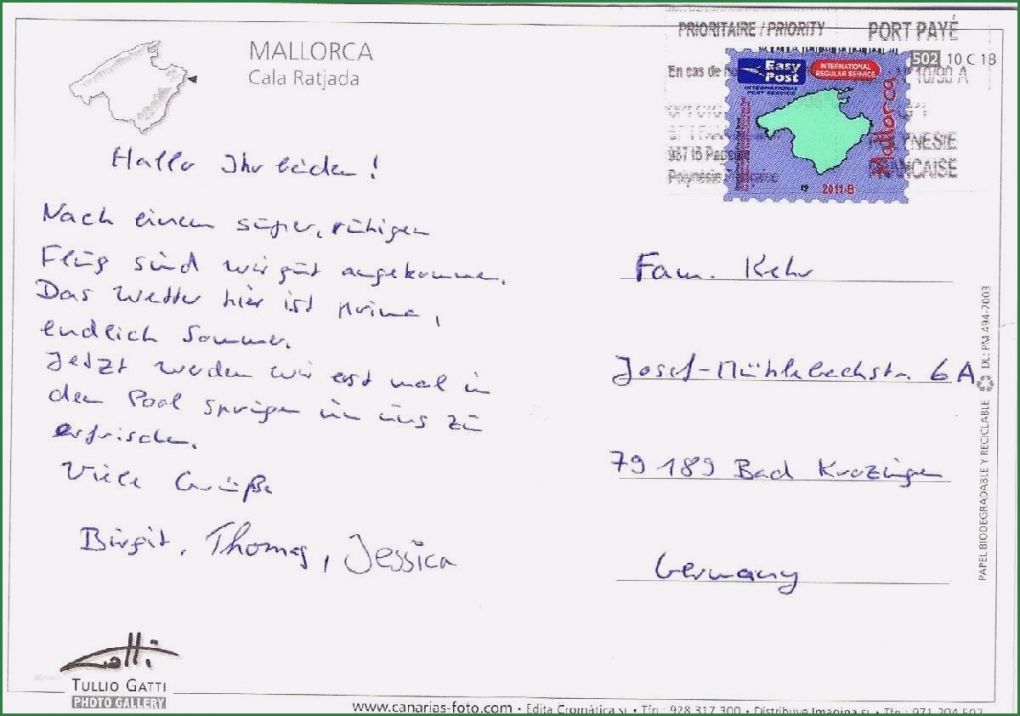 MALLORCA
Cala Ratjada
PRIORITAIRE / PRIORITY
PORT PAYÉ
502 10 C 18
En cas de
Easy Post
INTERNATIONAL POST SERVICE
INTERNATIONAL REGULAR SERVICE
Mallorca
2011-B
Hallo Ihr beiden!
Nach einem super, ruhigen
Flug sind wir gut angekommen.
Das Wetter hier ist prima,
endlich Sommer.
Jetzt werden wir erst mal in
den Pool springen um uns zu
erfrischen.
Viele Grüße
Birgit, Thomas, Jessica
Fam. Kehr
Josef-Mühlebachstr. 6A
79189 Bad Krozingen
Germany
PAPEL BIODEGRADABLE Y RECICLABLE DL: PM 494-2003
Gatti
TULLIO GATTI
PHOTO GALLERY
www.canarias-foto.com • Edita Cromática sl • Tfn.: 928 317 300 • Distribuye Imagina sl • Tfn.: 971 204 507